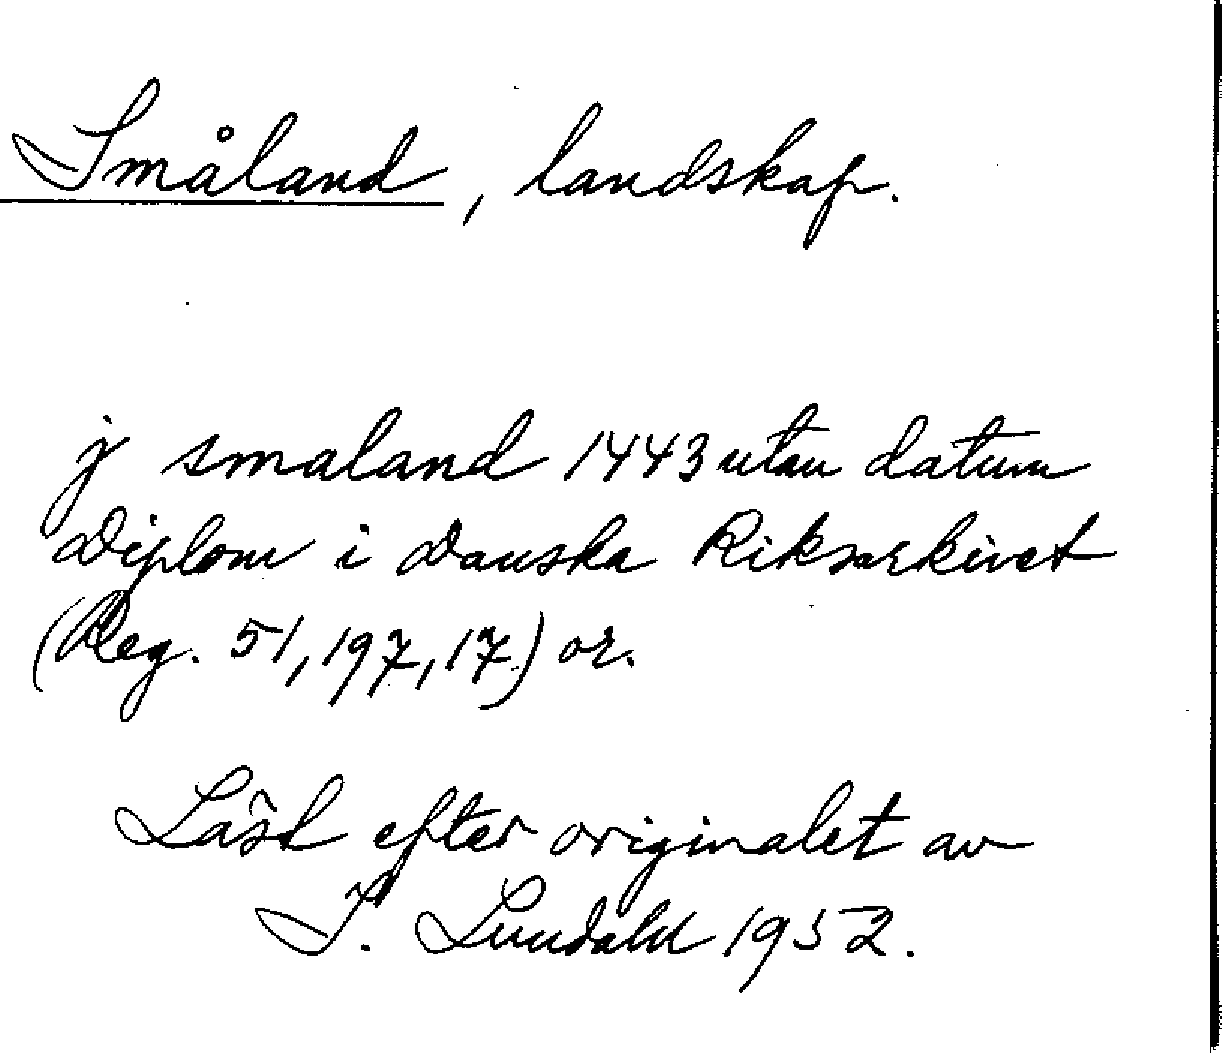 Småland, landskap.
j smaland 1443 utan datum
Diplom i Danska Riksarkivet
(Reg. 51, 197, 17) or.
Läst efter originalet av
I. Lundahl 1952.